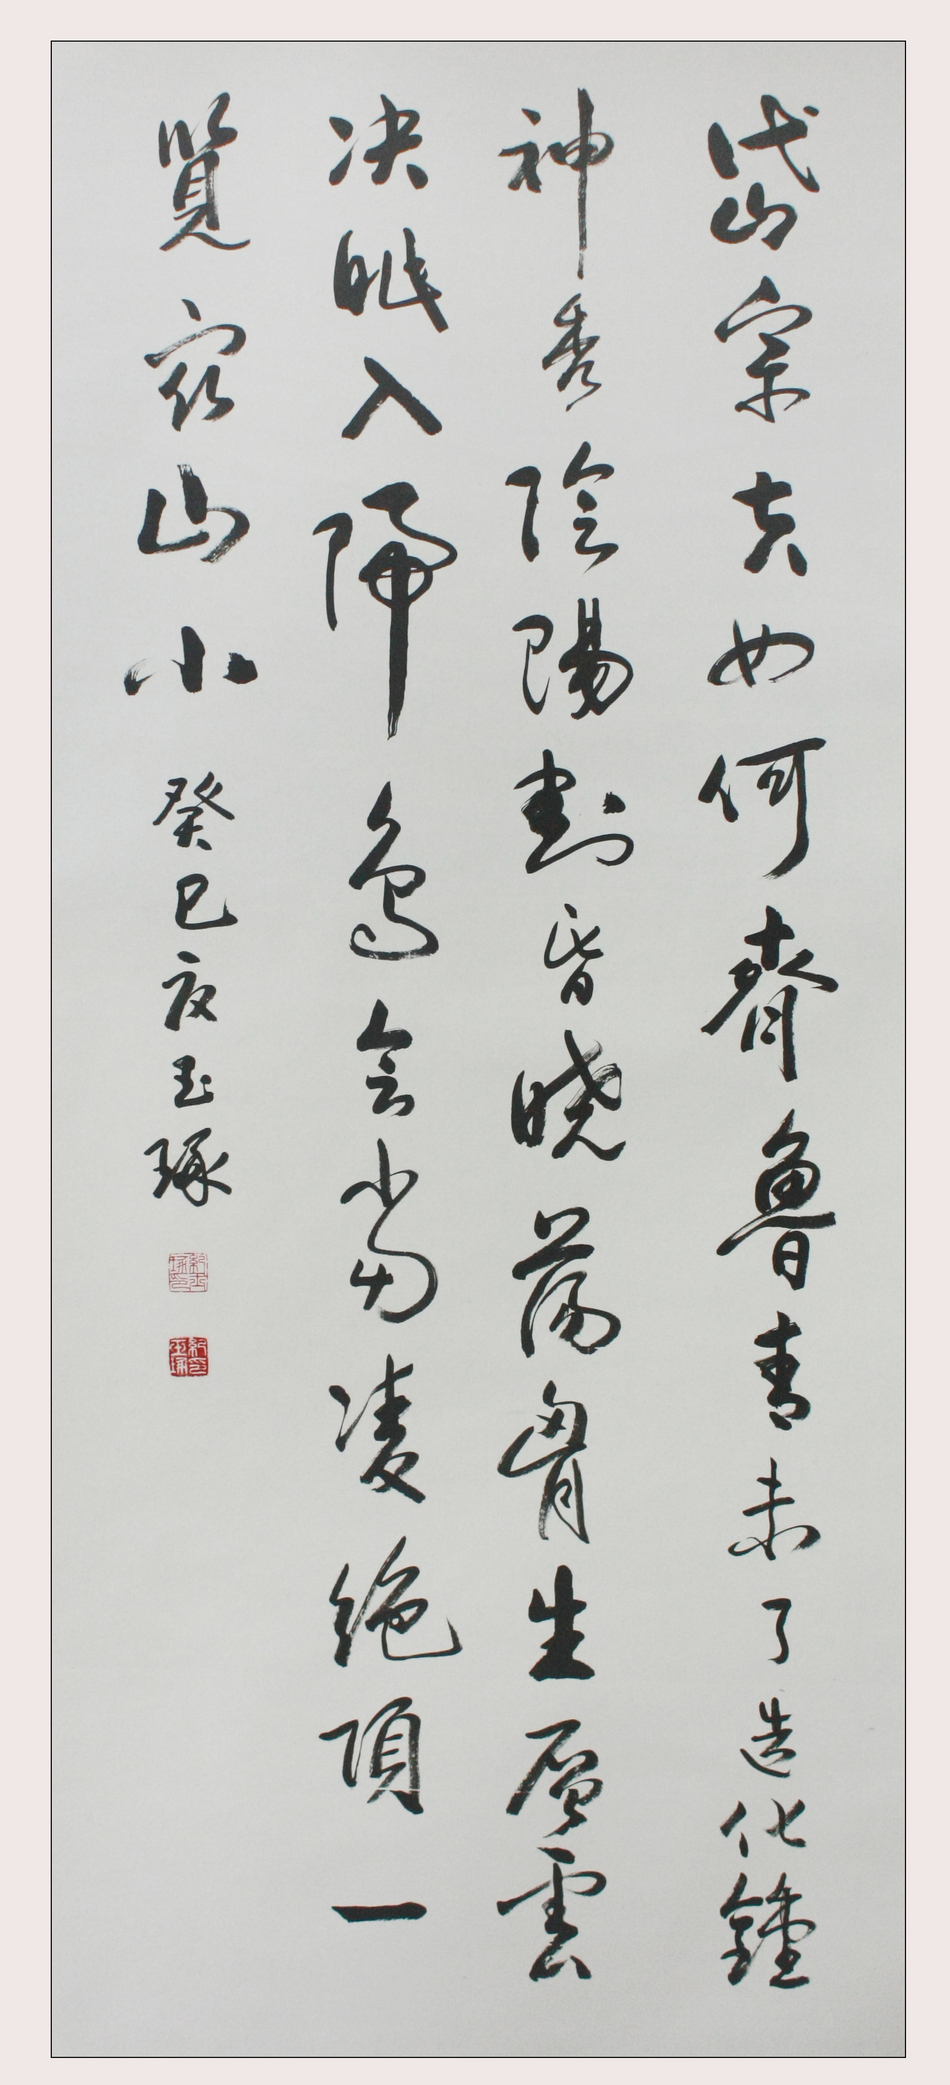 岱宗夫如何齊魯青未了造化鍾
神秀陰陽割昏曉蕩胷生層雲
决眦入歸鳥會當凌絕頂一
覽眾山小
癸巳玉琢